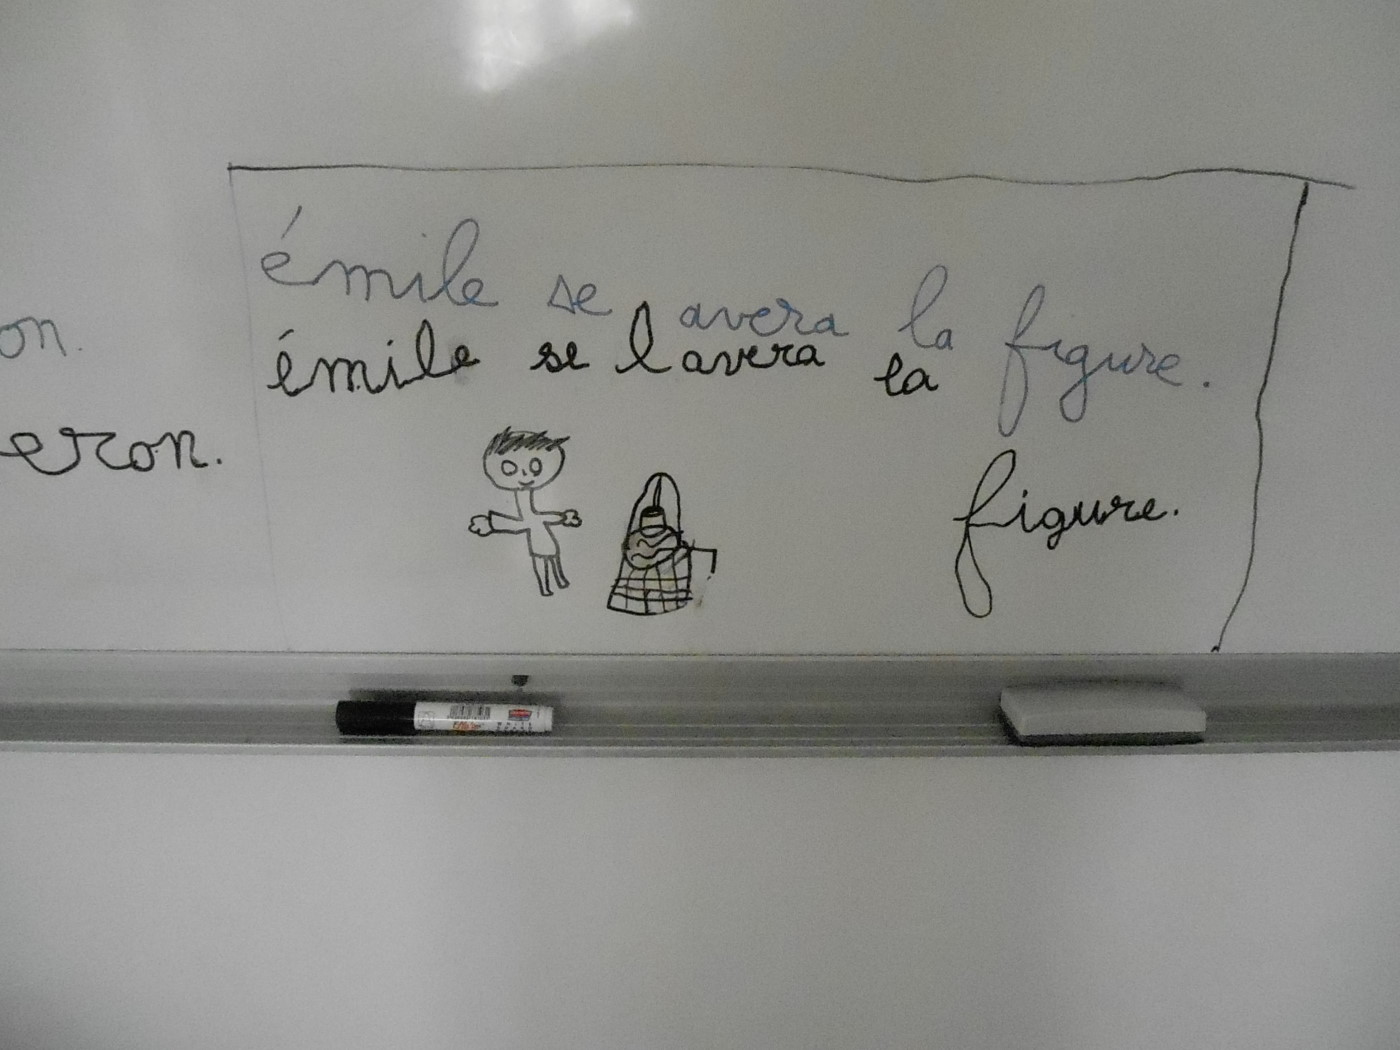 émile se avera la figure.
émile se lavera la
figure.
on.
eron.